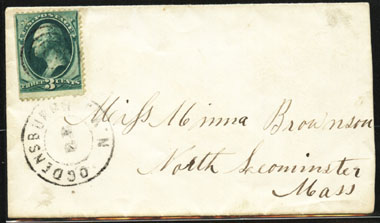 U.S. POSTAGE
THREE 3 CENTS
OGDENSBURGH
Miss Minna Brownson
North Leominster
Mass